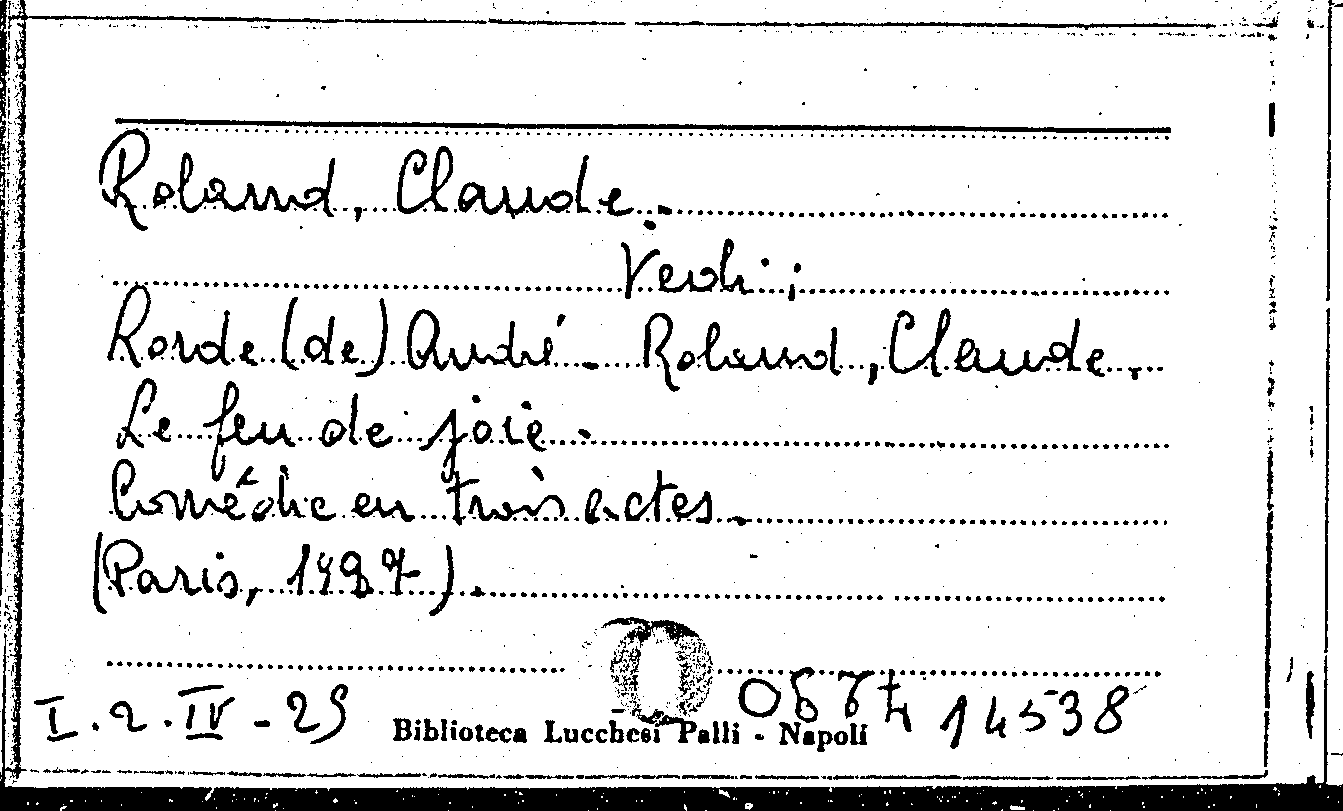 Roland, Claude.
Vedi:
Lorde (de) André. Roland, Claude.
Le feu de joie.
Comédie en trois actes.
(Paris, 1927).
I.2.IV-29 14538
Biblioteca Lucchesi Palli - Napoli